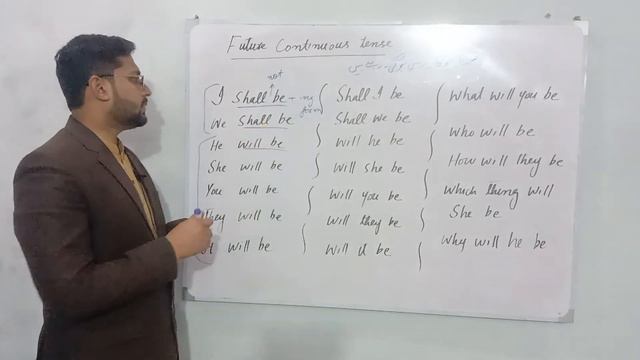 Future Continuous tense
not
I shall be - ing form
We shall be
He will be
She will be
You will be
They will be
It will be
Shall I be
Shall we be
will he be
will she be
will you be
will they be
will it be
what will you be
who will be
How will they be
which thing will
She be
why will he be